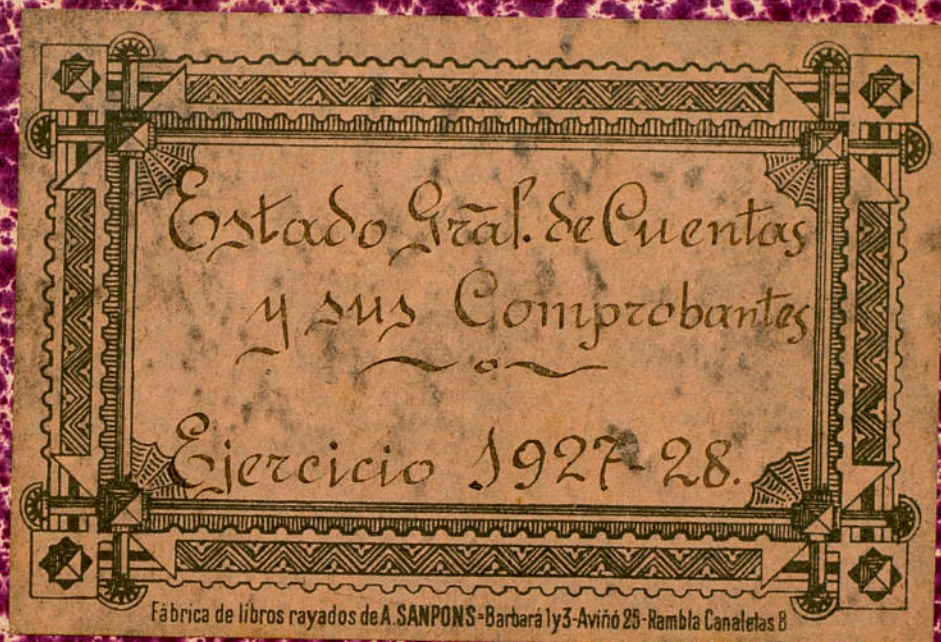 Estado Gral. de Cuentas
y sus Comprobantes
Ejercicio 1927-28.
Fábrica de libros rayados de A. SANPONS=Barbará 1y3-Aviñó 25-Rambla Canaletas 8